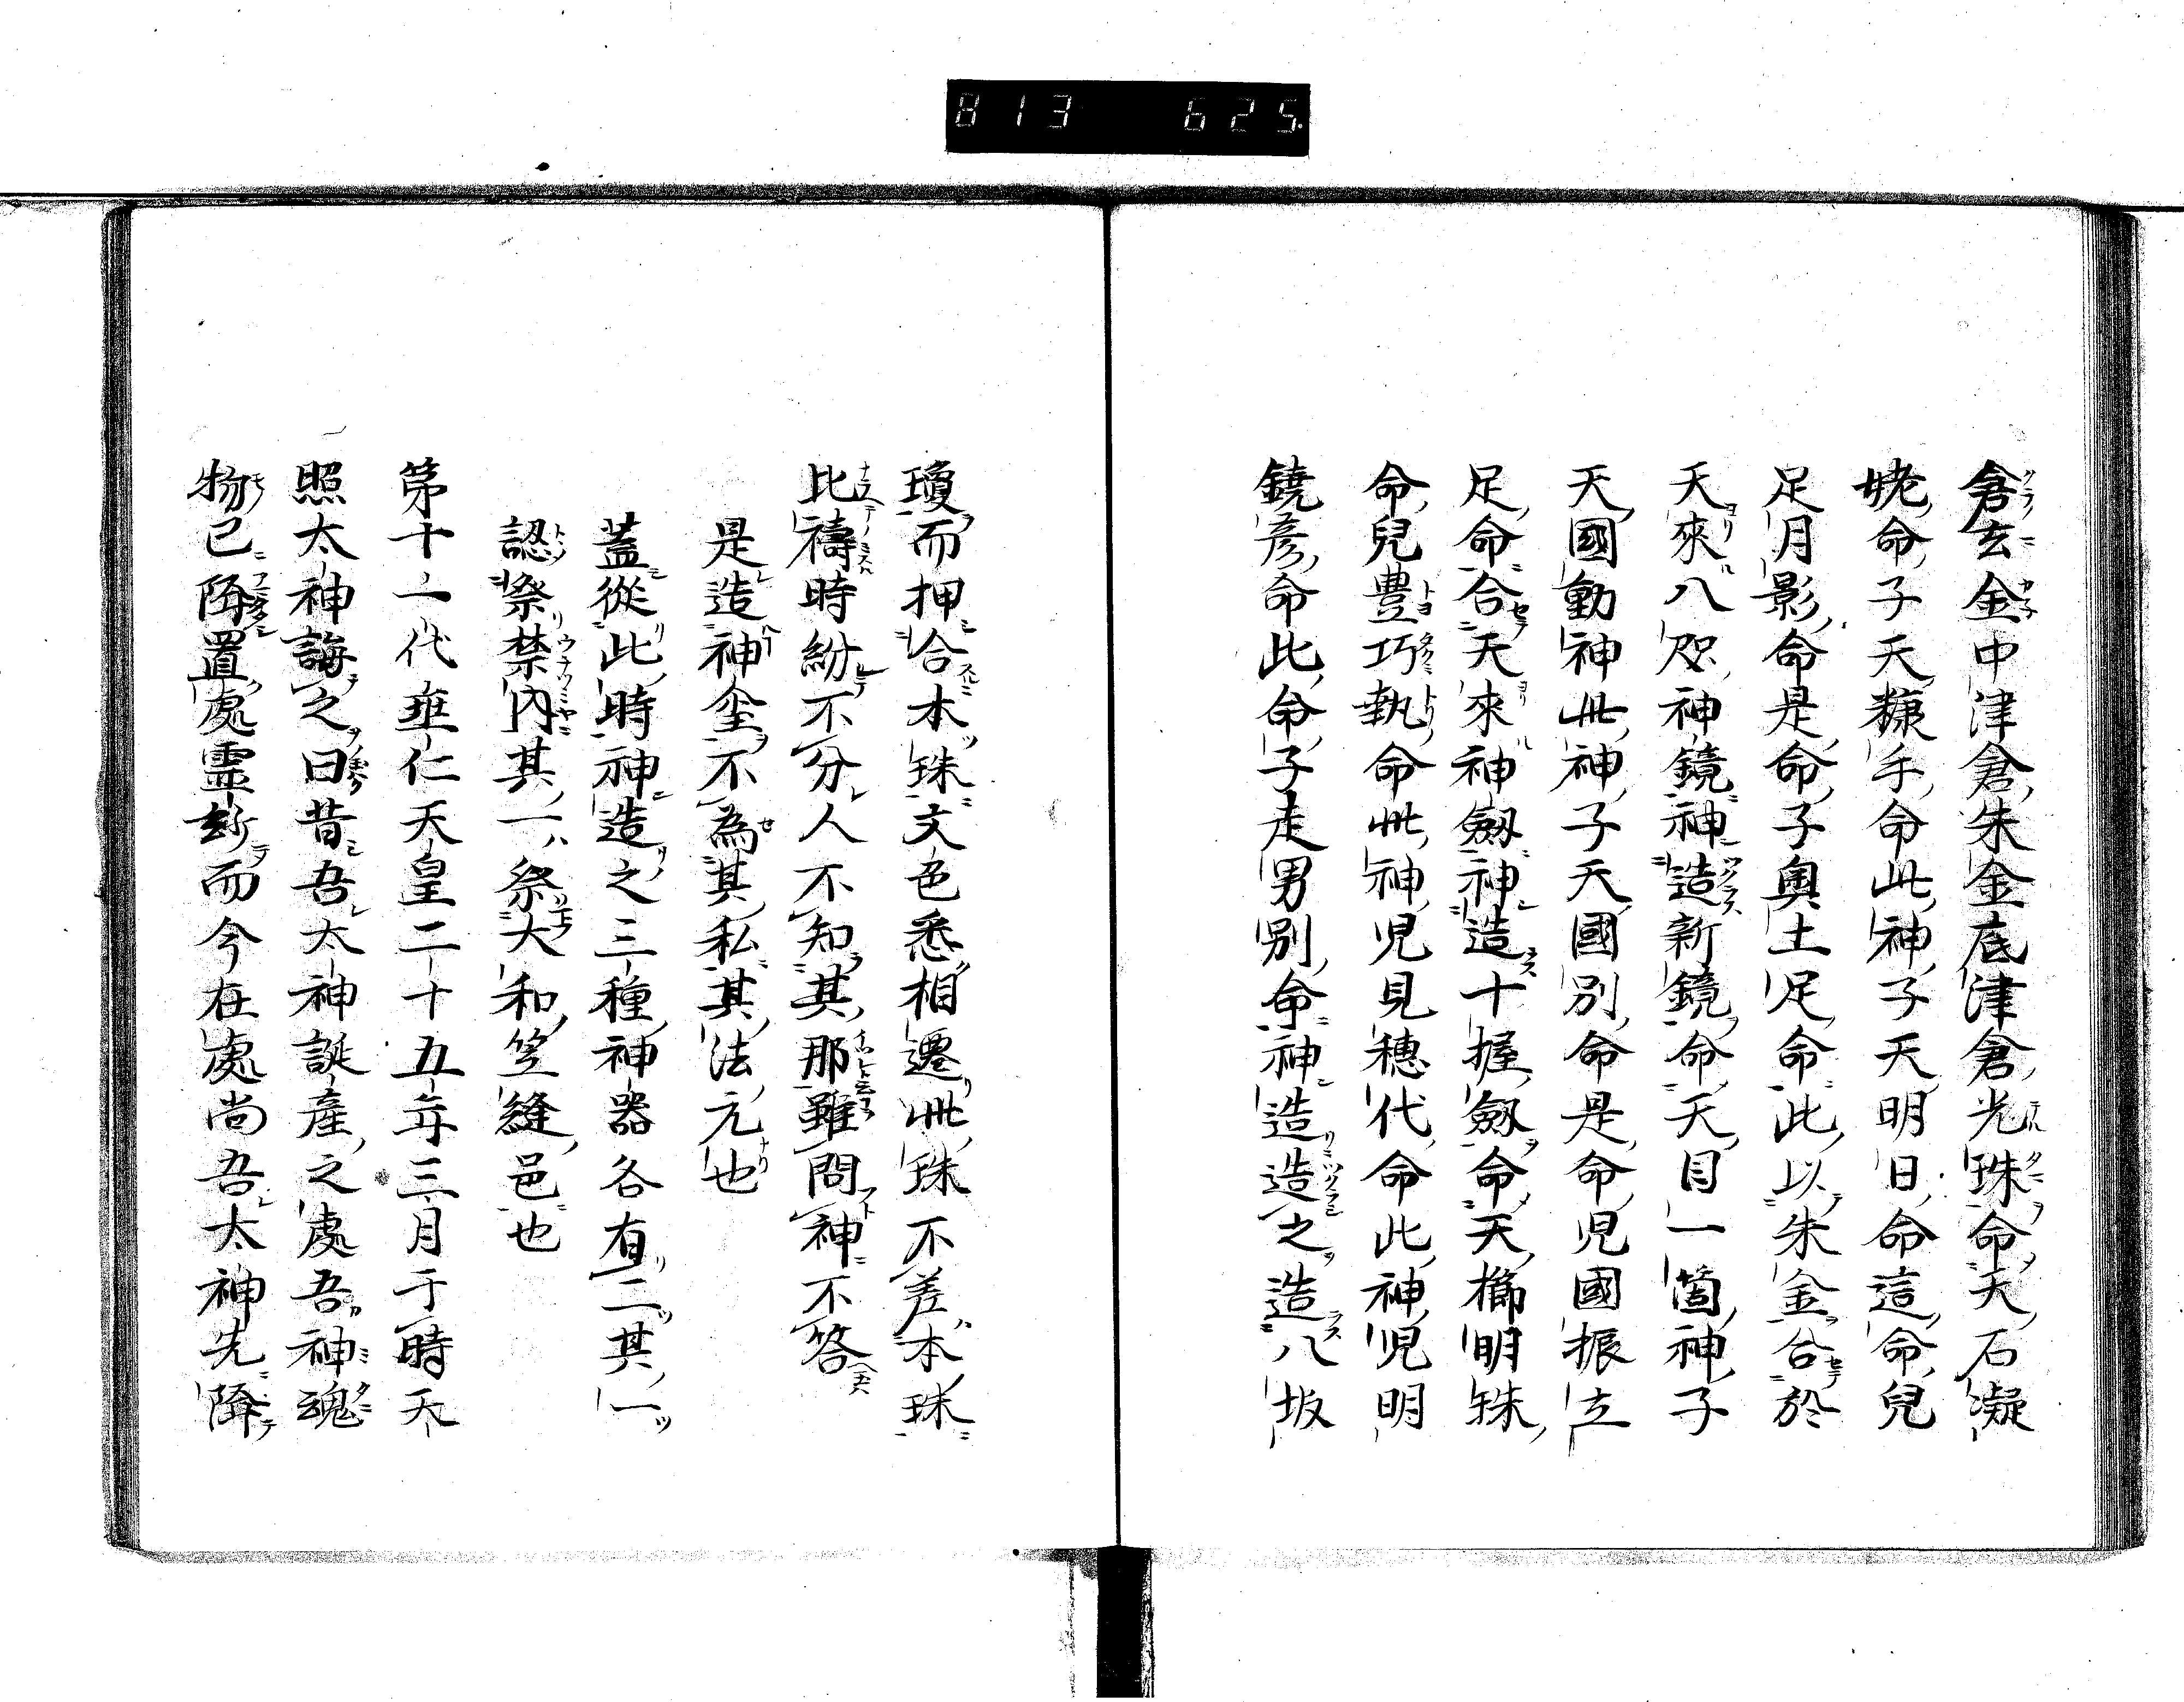 813 625
倉玄金中津倉朱金底津倉光珠命天石凝
姥命子天糠手命此神子天明日命這命兒
足月影命是命子奧土足命此以朱金合於
天來八咫神鏡神造新鏡命天目一箇神子
天國動神此神子天國別命是命児國振立
足命合天來神劔神造十握劔命天櫛明珠
命兒豊巧執命此神児見穗代命此神児明
鐃彦命此命子走男別命神造造之造八坂
瓊而押合本珠文色悉相遷此珠不差本珠
比禱時紛不分人不知其那雖問神不答
是造神坐不為其私其法元也
蓋從此時神造之三種神器各有二其一
認祭禁內其一祭大和笠縫邑也
第十二代垂仁天皇二十五年三月于時天
照太神誨之曰昔吾太神誕產之處吾神魂
物已降置處霊新而今在處尚吾太神先降